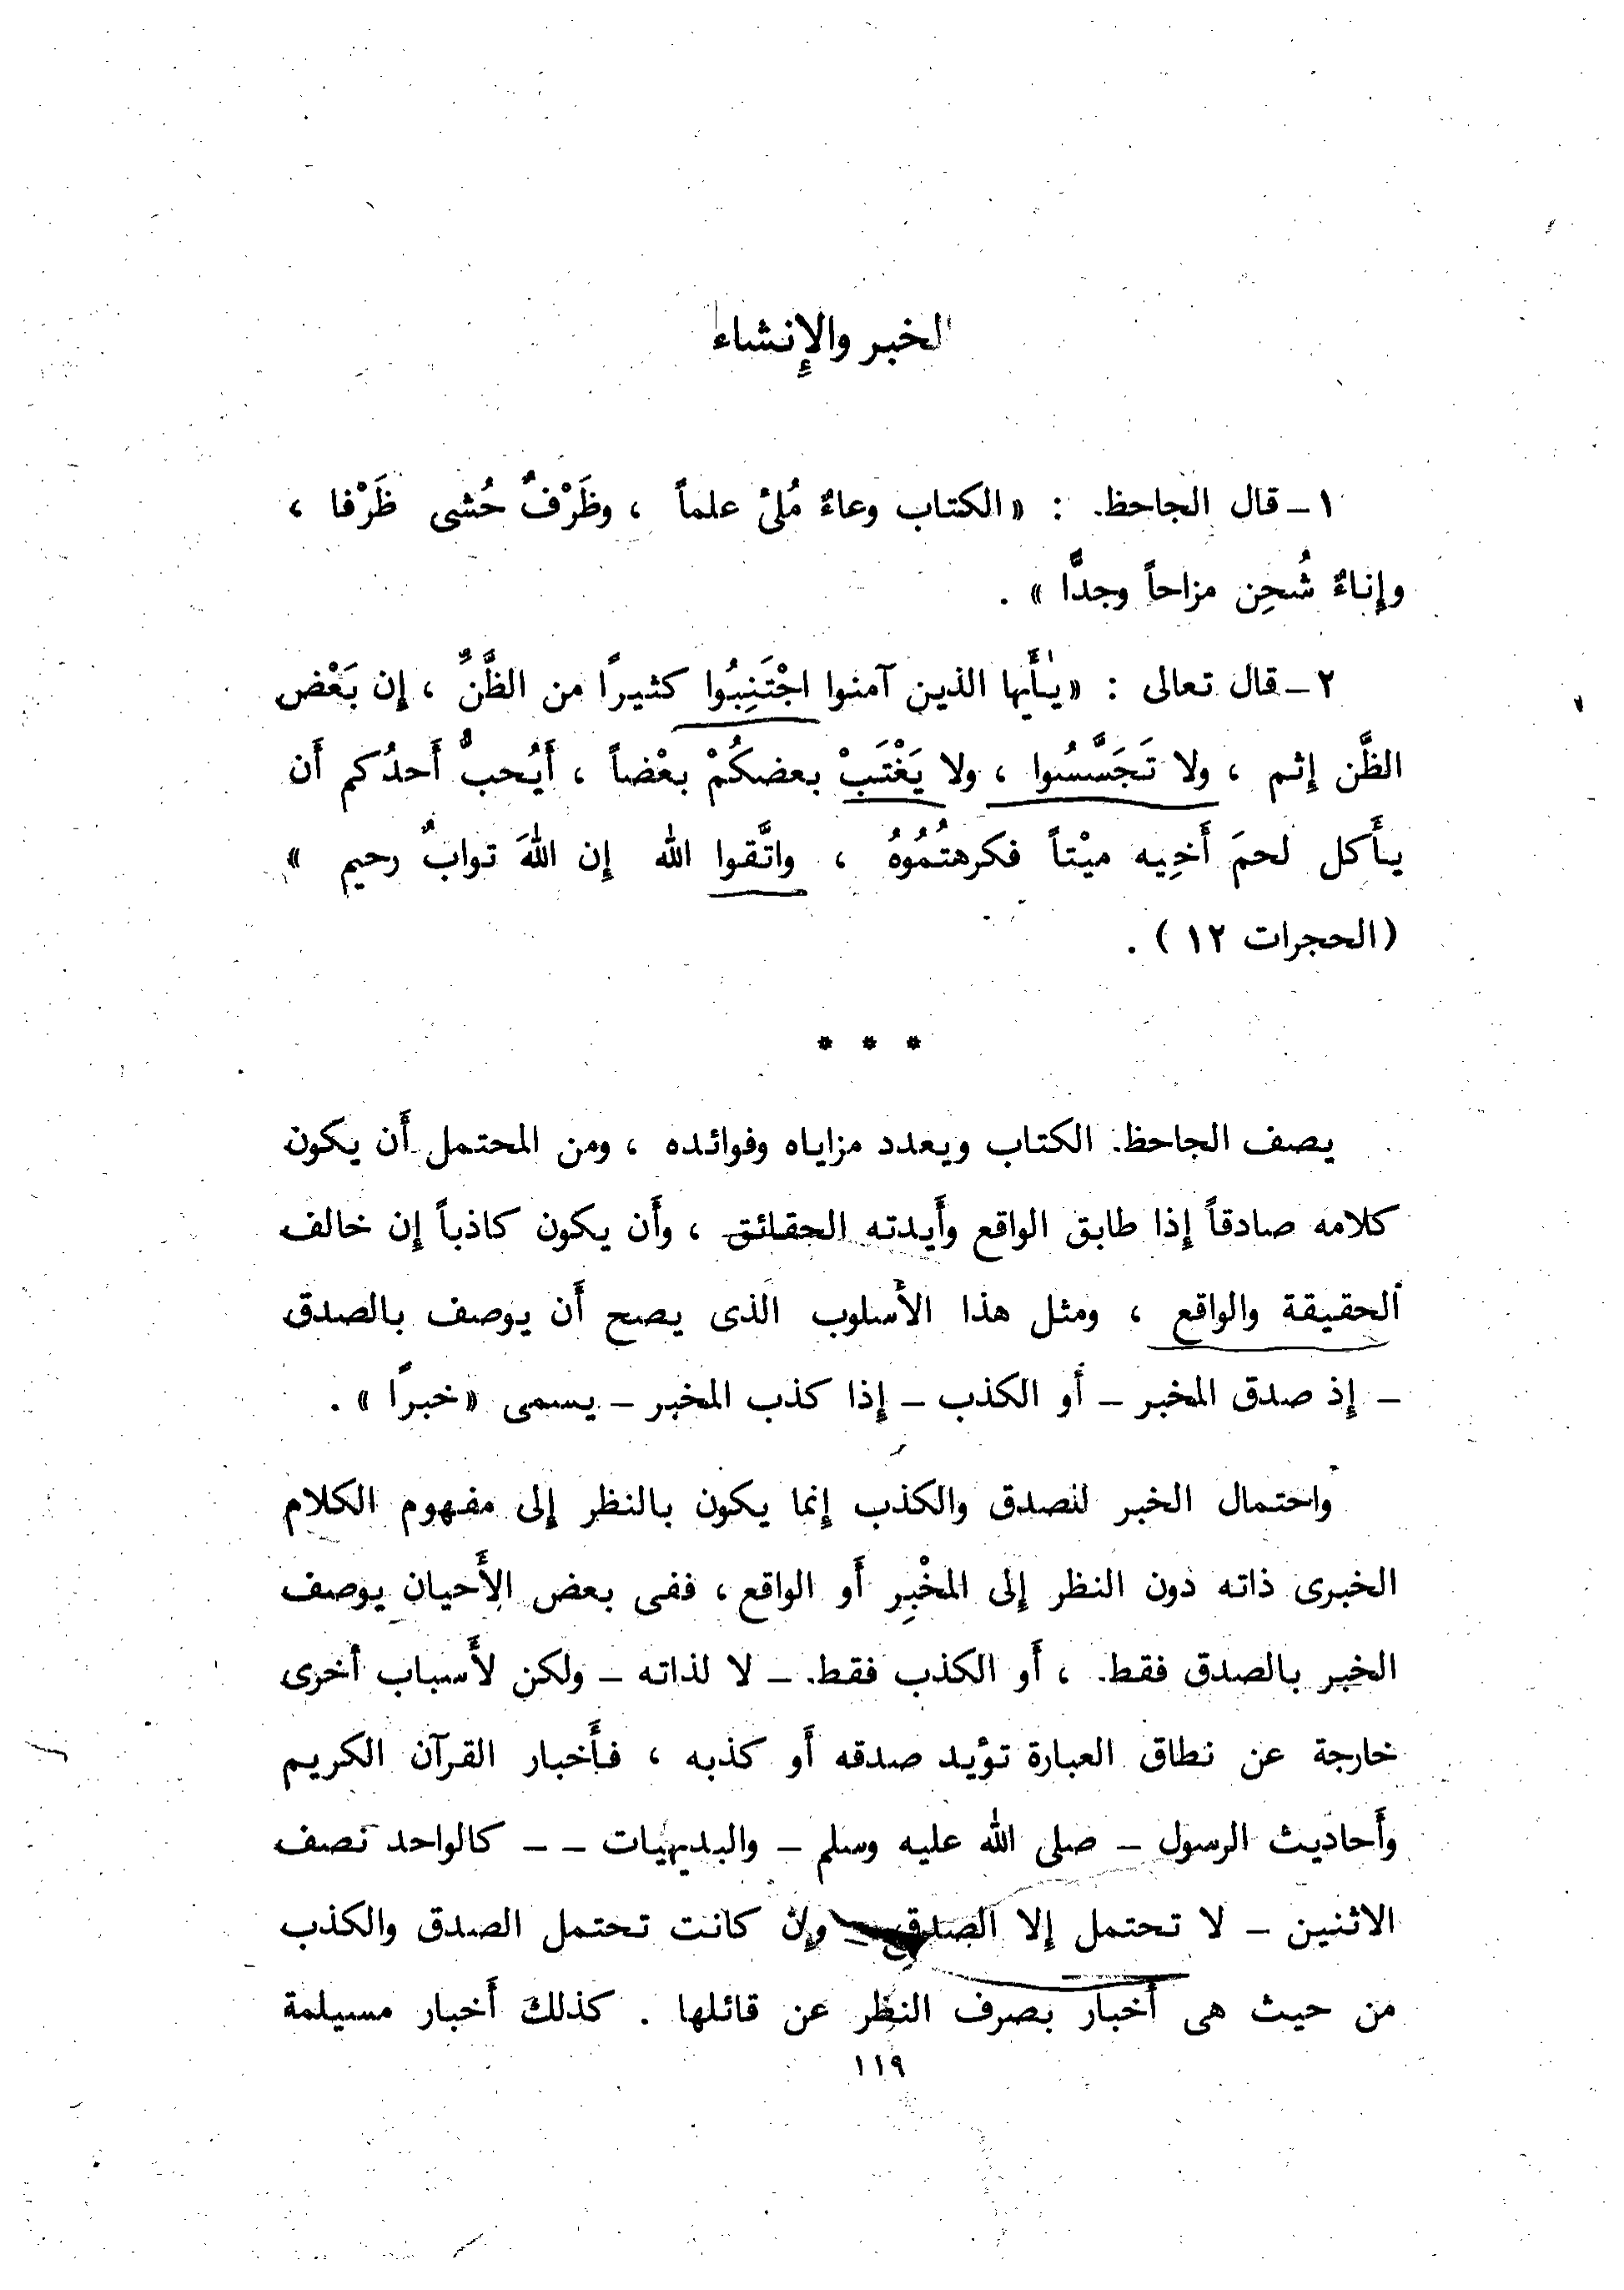 الخبر والإنشاء
١ ـ قال الجاحظ : « الكتاب وعاءٌ مُلئْ علماً ، وظَرْفٌ حُشى ظَرْفا ،
وإناءٌ شُحِن مزاحاً وجدًّا » .
٢ ـ قال تعالى : « يٰأَيها الذين آمنوا اجْتَنِبُوا كثيرًا من الظَّنِّ ، إن بَعْض
الظَّن إثم ، ولا تَجَسَّسُوا ، ولا يَغْتَبْ بعضكُمْ بعْضاً ، أَيُحبُّ أَحدُكم أَن
يأَكل لحمَ أَخِيه ميْتاً فكرهتُمُوهُ ، واتَّقوا الله إن اللهَ توابٌ رحيم »
(الحجرات ١٢ ) .
* * *
يصف الجاحظ الكتاب ويعدد مزاياه وفوائده ، ومن المحتمل أَن يكون
كلامه صادقاً إذا طابق الواقع وأَيدته الحقائق ، وأَن يكون كاذباً إن خالف
الحقيقة والواقع ، ومثل هذا الأَسلوب الذى يصح أَن يوصف بالصدق
ـ إذ صدق المخبر ـ أَو الكذب ـ إذا كذب المخبر ـ يسمى « خبرًا » .
واحتمال الخبر للصدق والكذب إنما يكون بالنظر إلى مفهوم الكلام
الخبرى ذاته دون النظر إلى المخْبِر أَو الواقع ، ففى بعض الأَحيان يوصف
الخبر بالصدق فقط ، أَو الكذب فقط ـ لا لذاته ـ ولكن لأَسباب أخرى
خارجة عن نطاق العبارة تؤيد صدقه أَو كذبه ، فأَخبار القرآن الكريم
وأَحاديث الرسول ـ صلى الله عليه وسلم ـ والبديهيات ـ ـ كالواحد نصف
الاثنين ـ لا تحتمل إلا الصدق ـ وإن كانت تحتمل الصدق والكذب
من حيث هى أَخبار بصرف النظر عن قائلها . كذلك أَخبار مسيلمة
١١٩